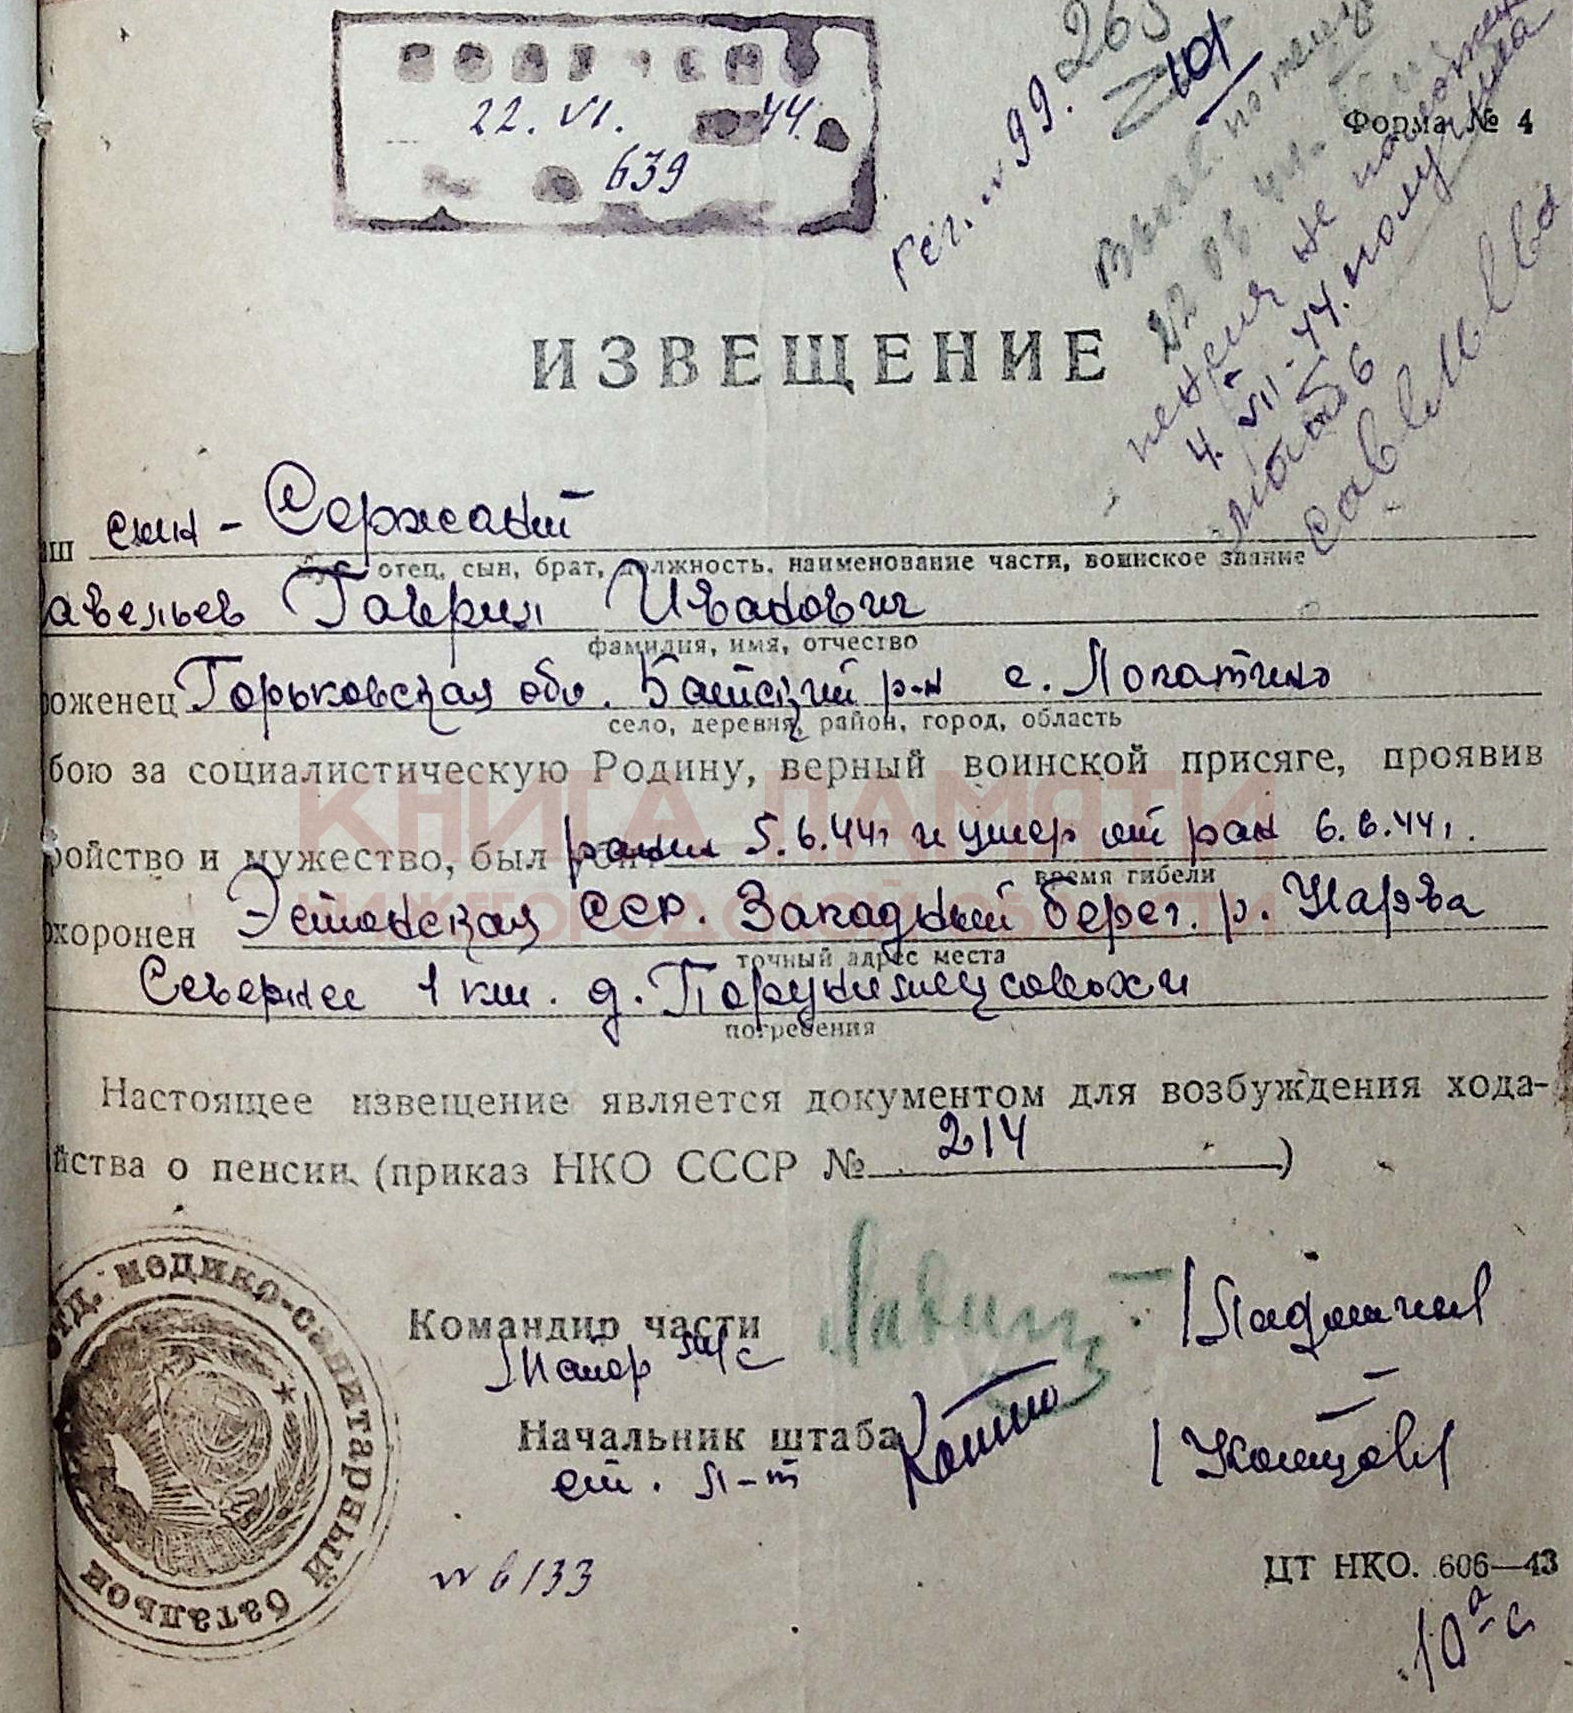 ПОЛУЧЕН
22. VI. 44
639
Рег. № 99.
265
101
Форма № 4
22
пенсия не
4. VII-44. получила
Савельева
ИЗВЕЩЕНИЕ
аш сын - Сержант
муж, отец, сын, брат, должность, наименование части, воинское звание
авельев Гаврил Иванович
фамилия, имя, отчество
роженец Горьковская обл. р-н с. Лопатино
село, деревня, район, город, область
бою за социалистическую Родину, верный воинской присяге, проявив
КНИГА ПАМЯТИ
ройство и мужество, был ранен 5.6.44г и умер от ран 6.6.44г.
время гибели
НИЖЕГОРОДСКОЙ ОБЛАСТИ
охоронен Эстонская ССР. Западный берег. р. Нарва
точный адрес места
Севернее 1 км. д.
погребения
Настоящее извещение является документом для возбуждения хода-
йства о пенсии (приказ НКО СССР № 214)
отд. медико-санитарный батальон
Командир части
Майор м/с
Начальник штаба
ст. л-т
№ 6133
ЦТ НКО. 606—43
10